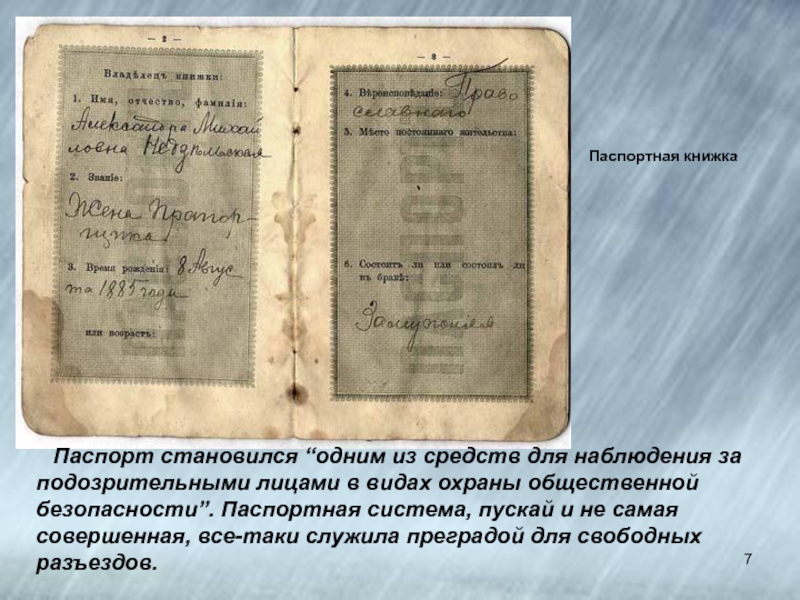 — 2 —
Владѣлецъ книжки:
1. Имя, отчество, фамилія:
Александра Михай
ловна
2. Званіе:
Жена Прапор-
щика
3. Время рожденія: 8 Авгус
та 1885 года
или возрастъ:
— 3 —
4. Вѣроисповѣданіе: Право
славнаго
5. Мѣсто постояннаго жительства:
6. Состоитъ ли или состоялъ ли
въ бракѣ:
Замужняя
Паспортная книжка
Паспорт становился “одним из средств для наблюдения за
подозрительными лицами в видах охраны общественной
безопасности”. Паспортная система, пускай и не самая
совершенная, все-таки служила преградой для свободных
разъездов.
7